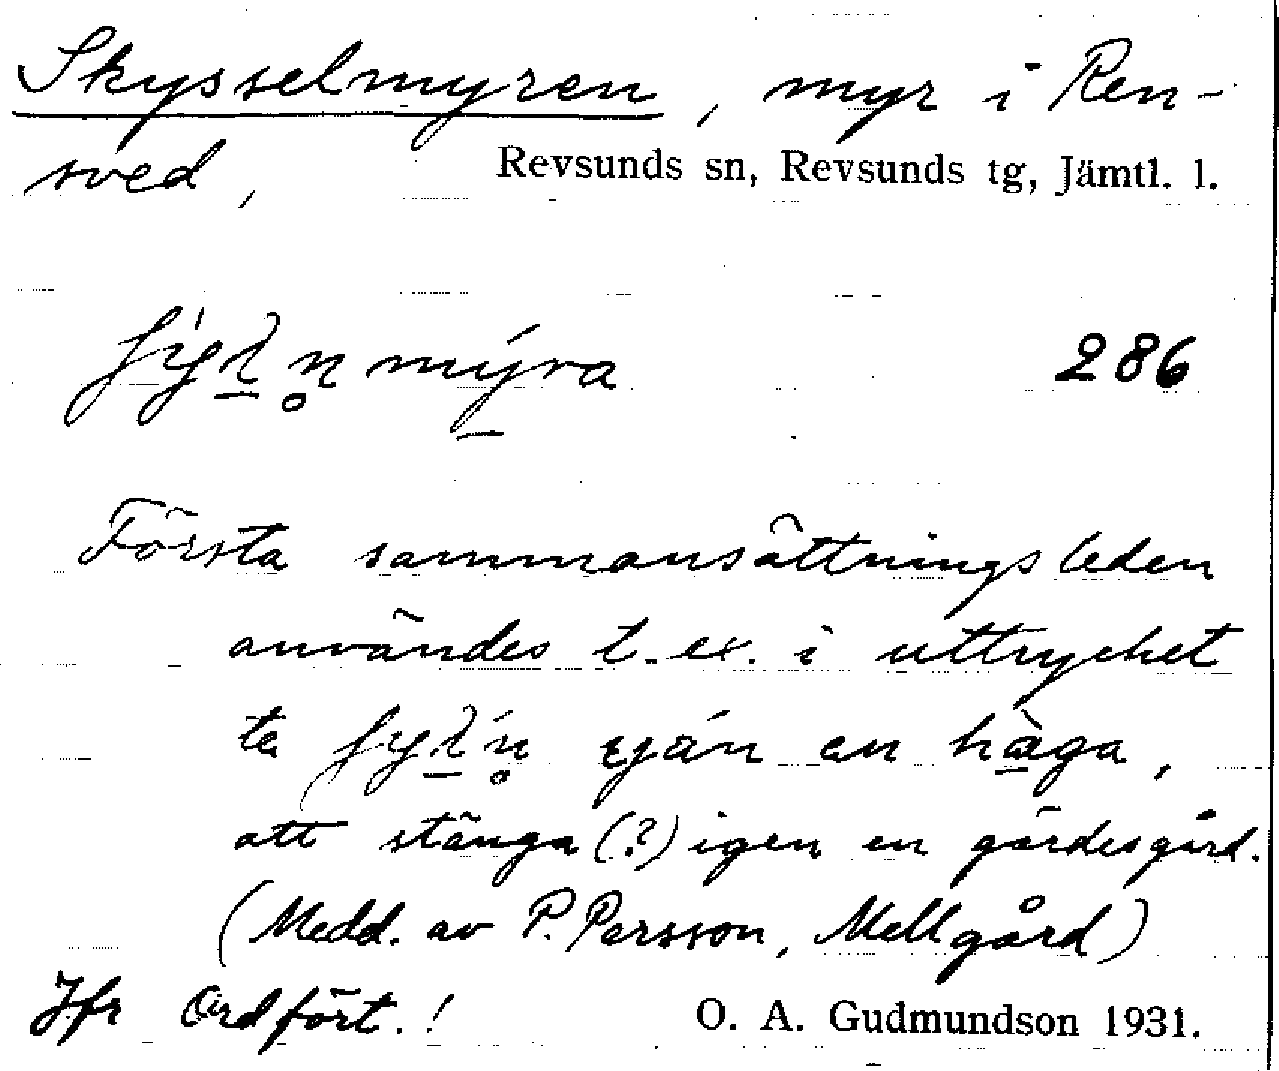 Skysselmyren, myr i Ren-
sved, Revsunds sn, Revsunds tg, Jämtl. l.
286
Första sammansättningsleden
användes t.ex. i uttrycket
te en hàga,
att stänga (?) igen en gärdesgård.
(Medd. av P. Persson, Mellgård)
Jfr Ordfört.! O. A. Gudmundson 1931.